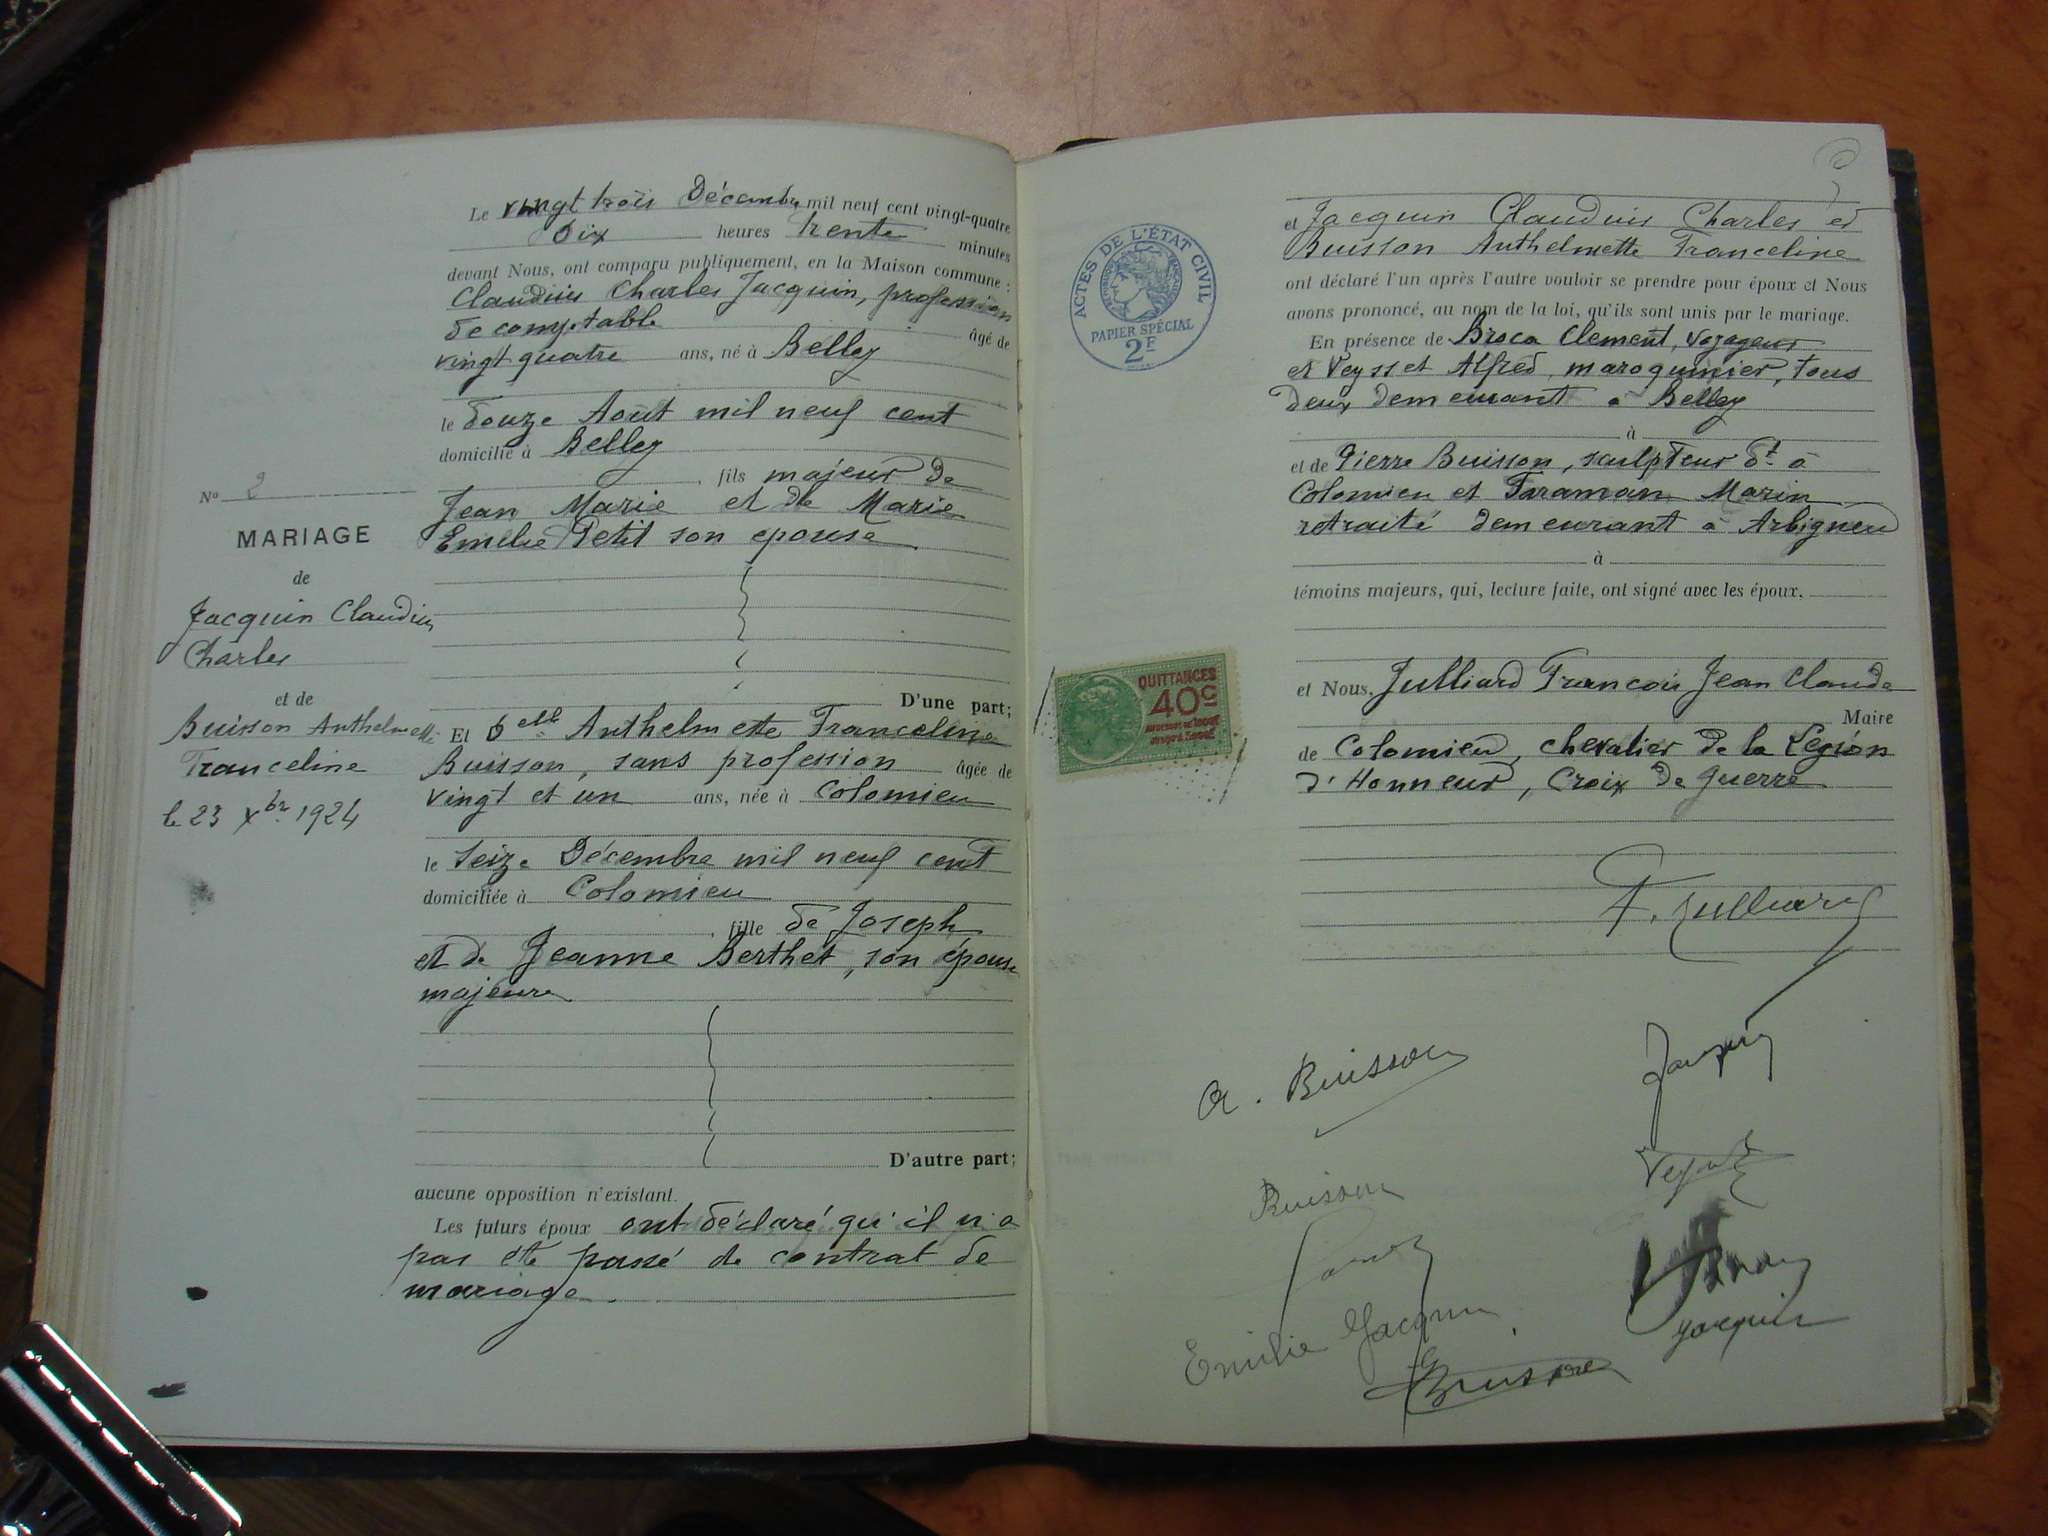 Le vingt trois Décembre mil neuf cent vingt-quatre
Dix heures trente minutes
devant Nous, ont comparu publiquement, en la Maison commune :
Claudius Charles Jacquin, profession
de comptable âgé de
vingt quatre ans, né à Belley
le douze Août mil neuf cent
domicilié à Belley
, fils majeur de
Jean Marie et de Marie
Emelie Petit son epouse
D'une part;
Et Delle Anthelmette Franceline
Buisson, sans profession âgée de
vingt et un ans, née à Colomieu
le seize Décembre mil neuf cent
domiciliée à Colomieu
, fille de Joseph
et de Jeanne Berthet, son épouse
majeure
D'autre part;
aucune opposition n'existant.
Les futurs époux ont déclaré qu'il n'a
pas été passé de contrat de
mariage.
No 2
MARIAGE
de
Jacquin Claudius
Charles
et de
Buisson Anthelmette
Franceline
le 23 Xbr 1924
ACTES DE L'ÉTAT CIVIL
PAPIER SPÉCIAL
2F
QUITTANCES
40c
et Jacquin Claudius Charles et
Buisson Anthelmette Franceline
ont déclaré l'un après l'autre vouloir se prendre pour époux et Nous
avons prononcé, au nom de la loi, qu'ils sont unis par le mariage.
En présence de Broca Clement, voyageur
et Veysset Alfred, maroquinier, tous
deux demeurant à Belley
à
et de Pierre Buisson, sculpteur dt à
Colomieu et Taraman Marin
retraité demeurant à Arbignieu
à
témoins majeurs, qui, lecture faite, ont signé avec les époux.
et Nous, Julliard Francois Jean Claude
Maire
de Colomieu, chevalier de la Legion
d'Honneur, Croix de Guerre
F. Julliard
A. Buisson
Jacquin
Buisson
Emilie Jacquin
Jacquin
Buisson